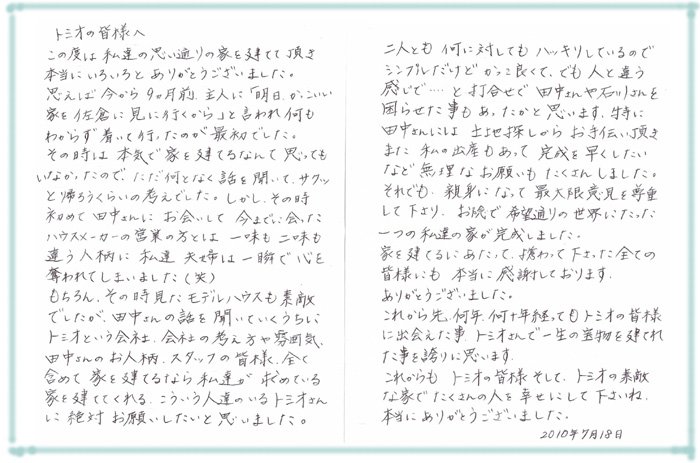 トミオの皆様へ
この度は私達の思い通りの家を建てて頂き
本当にいろいろとありがとうございました。
思えば今から9ヵ月前、主人に「明日、かっこいい
家を佐倉に見に行くから」と言われ何も
わからず着いて行ったのが最初でした。
その時は本気で家を建てるなんて思っても
いなかったので、ただ何となく話を聞いて、サクッ
と帰ろうくらいの考えでした。しかし、その時
初めて田中さんにお会いして今まで会った
ハウスメーカーの営業の方とは一味も二味も
違う人柄に私達夫婦は一瞬で心を
奪われてしまいました(笑)
もちろん、その時見たモデルハウスも素敵
でしたが、田中さんの話を聞いていくうちに
トミオという会社、会社の考え方や雰囲気、
田中さんのお人柄、スタッフの皆様、全て
含めて家を建てるなら私達が求めている
家を建ててくれる、こういう人達のいるトミオさん
に絶対お願いしたいと思いました。
二人とも何に対してもハッキリしているので
シンプルだけどかっこ良くて、でも人と違う
感じで…と打合せで田中さんや石川さんを
困らせた事もあったかと思います。特に
田中さんには土地探しからお手伝い頂き
また私の出産もあって完成を早くしたい
など無理なお願いもたくさんしました。
それでも、親身になって最大限意見を尊重
して下さり、お陰で希望通りの世界にたった
一つの私達の家が完成しました。
家を建てるにあたって、携わって下さった全ての
皆様にも本当に感謝しております。
ありがとうございました。
これから先、何年、何十年経ってもトミオの皆様
に出会えた事、トミオさんで一生の宝物を建てれ
た事を誇りに思います。
これからもトミオの皆様そして、トミオの素敵
な家でたくさんの人を幸せにして下さいね。
本当にありがとうございました。
2010年7月18日